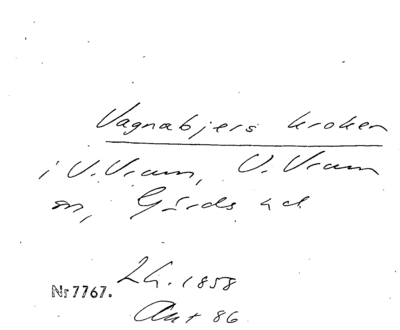 Vagnabjers kroken
i V. Vram, V. Vram
sn, Gärds hd
LH. 1858
Nr 7767.
Ant 86